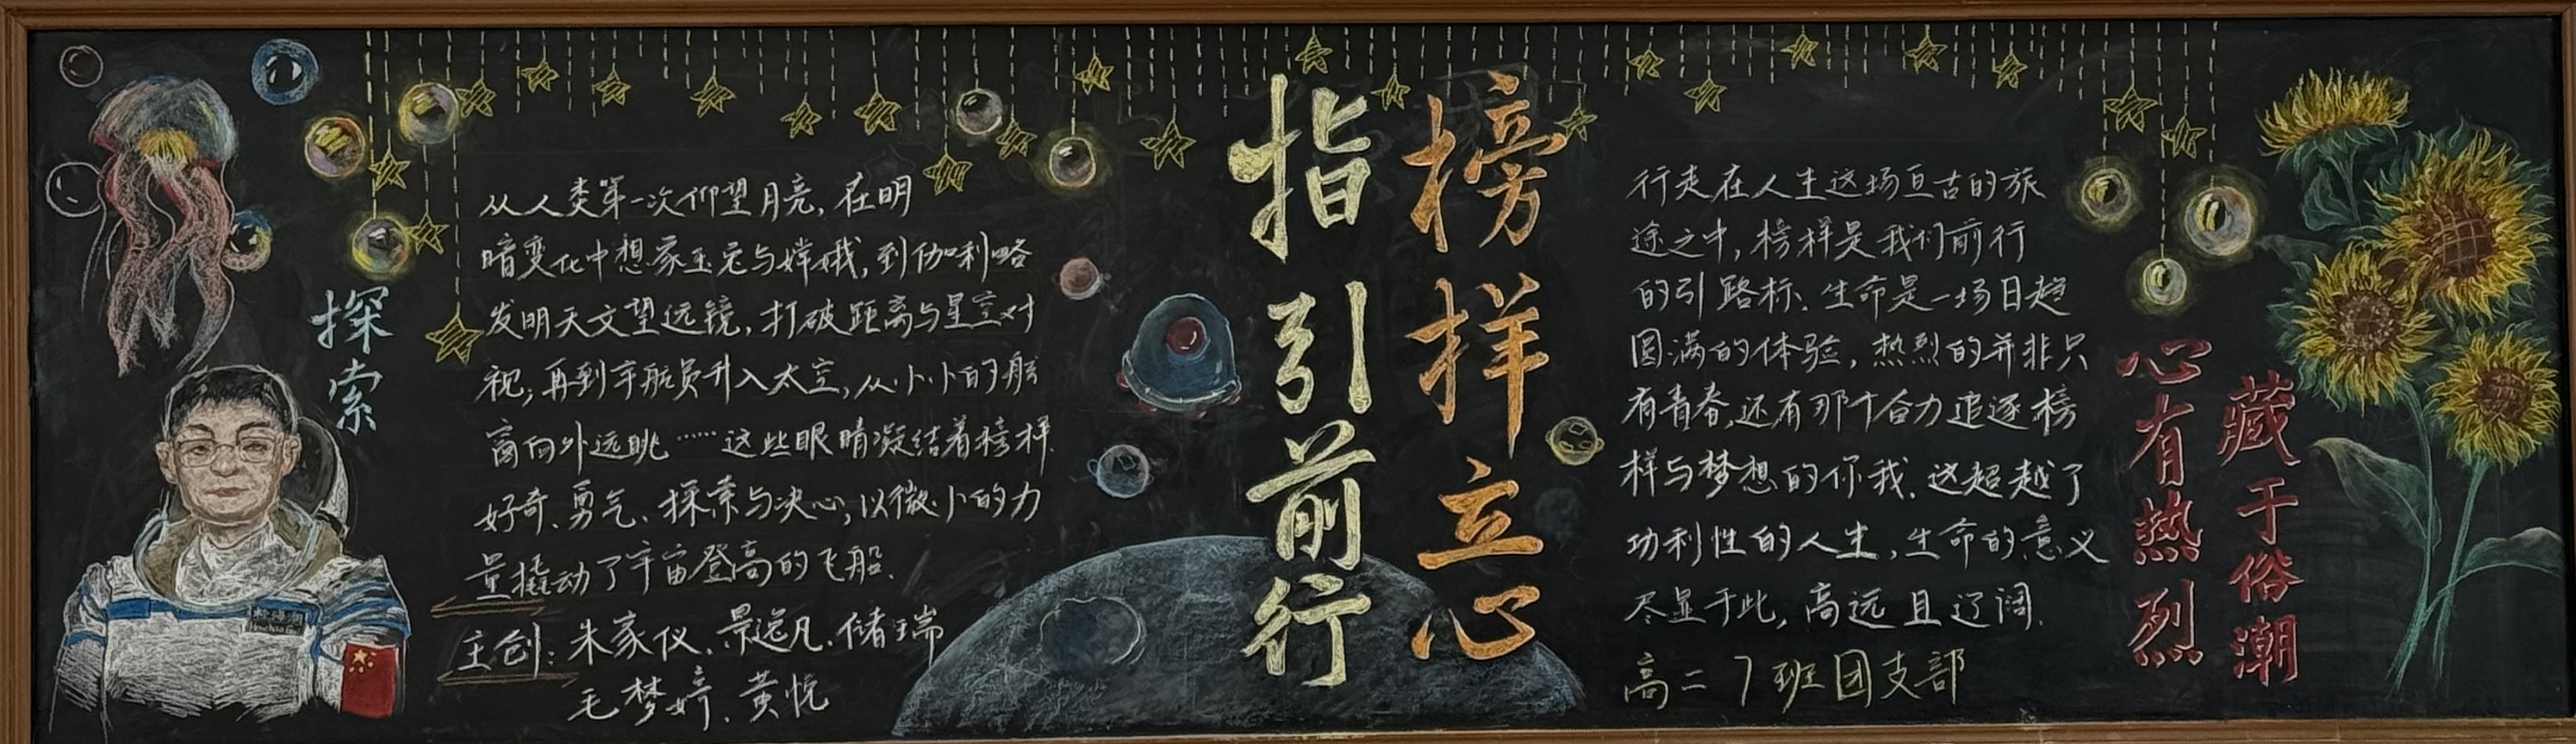 探索
从人类第一次仰望月亮，在明
暗变化中想象玉兔与嫦娥，到伽利略
发明天文望远镜，打破距离与星空对
视；再到宇航员升入太空，从小小的舷
窗向外远眺……这些眼睛凝结着榜样.
好奇、勇气、探索与决心，以微小的力
量撬动了宇宙登高的飞船.
主创：朱家仪、景逸凡、储瑞
毛梦婷、黄悦
榜样立心
指引前行
行走在人生这场亘古的旅
途之中，榜样是我们前行
的引路标、生命是一场日趋
圆满的体验，热烈的并非只
有青春，还有那个合力追逐榜
样与梦想的你我、这超越了
功利性的人生，生命的意义
尽显于此，高远且辽阔.
高二7班团支部
藏于俗潮
心有热烈